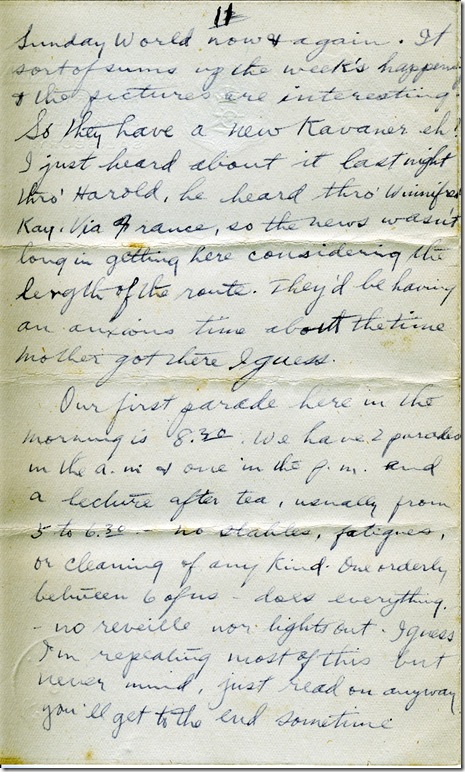 11
Sunday World now & again. It
sort of sums up the week's happen
& the pictures are interesting
So they have a new Kavaner eh!
I just heard about it last night
thro' Harold, he heard thro' Winnifred
Kay. Via France, so the news wasn't
long in getting here considering the
length of the route. They'd be having
an anxious time about the time
mother got there I guess.
Our first parade here in the
morning is 8.30. We have 2 parades
in the a.m & one in the p.m. and
a lecture after tea, usually from
5 to 6.30 - no stables, fatigues,
or cleaning of any kind. One orderly
between 6 of us - does everything.
- no reveille nor lights out - I guess
I'm repeating most of this but
never mind, just read on anyway
you'll get to the end sometime